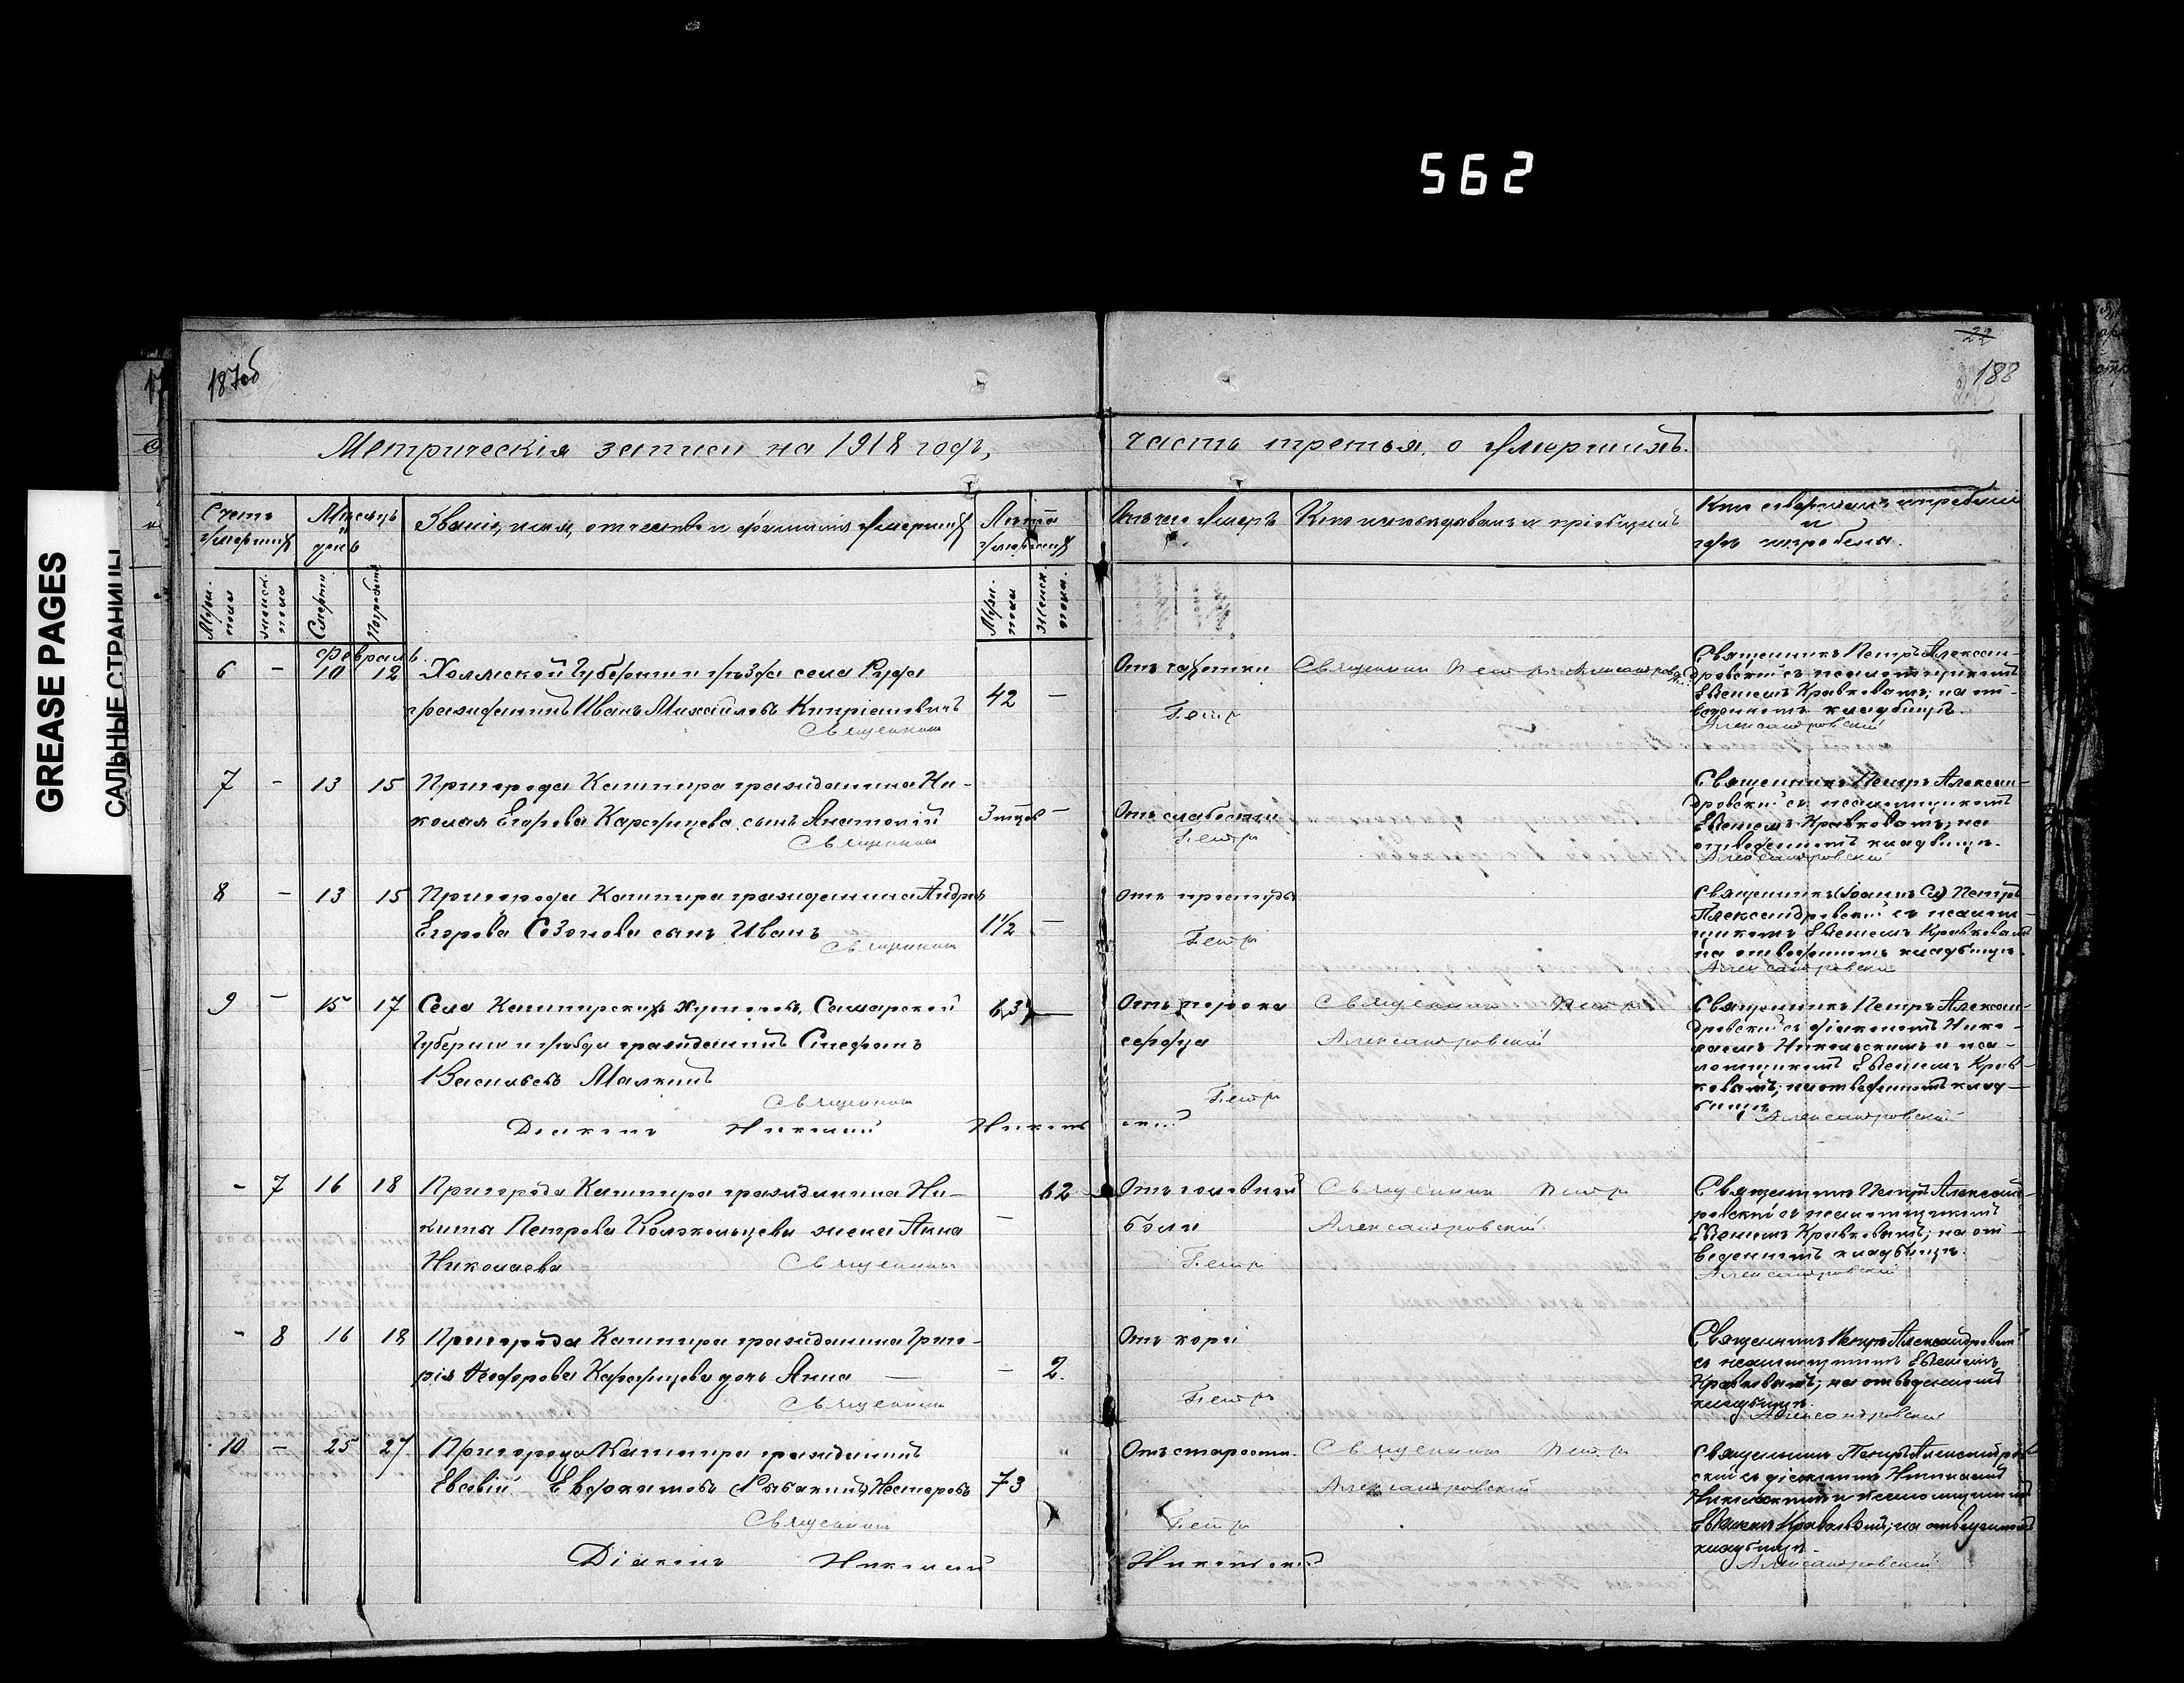 562
GREASE PAGES
САЛЬНЫЕ СТРАНИЦЫ
187об
22
188
Метрическія записи на 1918 годъ, часть третья, о умершихъ.
Счетъ умершихъ
Мѣсяцъ и день
Званіе, имя, отчество и фамилія умершихъ
Лѣта умершихъ
Отъ чего умеръ
Кто исповѣдывалъ и пріобщилъ
Кто совершалъ погребеніе и гдѣ погребены.
Муж. пола
Женск. пола
Смерти
Погребенія
Муж. пола
Женск. пола.
Февраль.
6 - 10 12 Холмской Губерніи и уѣзда села Руда
гражданинъ Иванъ Михайловъ 42 -
Отъ чахотки
Священникъ Петръ Александровскій
Священникъ Петръ Александровскій съ псаломщикомъ
Евгеніемъ Кравковымъ; на отведенномъ кладбищѣ.
Священникъ Петръ Александровскій
7 - 13 15 Пригорода Кашпира гражданина Николая Егорова сынъ Анатолій
3 мцов -
Отъ слабости
Священникъ Петръ Александровскій съ псаломщикомъ
Евгеніемъ Кравковымъ; на отведенномъ кладбищѣ.
Священникъ Петръ Александровскій
8 - 13 15 Пригорода Кашпира гражданина Андрея
Егорова Созонова сынъ Иванъ 1½ -
Отъ простуды
Священникъ Петръ
Александровскій съ псаломщикомъ Евгеніемъ Кравковымъ
на отведенномъ кладбищѣ.
Священникъ Петръ Александровскій
9 - 15 17 Села Кашпирскихъ Хуторовъ, Самарской
Губерніи и уѣзда гражданинъ Стефанъ
Васильевъ Малкинъ 63 -
Отъ порока сердца
Священникъ Петръ Александровскій
Священникъ Петръ Александровскій съ діакономъ Николаемъ Никольскимъ и псаломщикомъ Евгеніемъ Кравковымъ; на отведенномъ кладбищѣ
Священникъ Петръ Александровскій
Діаконъ Николай Никольскій
- 7 16 18 Пригорода Кашпира гражданина Никиты Петрова Колокольцева жена Анна
Николаева - 62
Отъ головной боли
Священникъ Петръ Александровскій
Священникъ Петръ Александровскій съ псаломщикомъ
Евгеніемъ Кравковымъ; на отведенномъ кладбищѣ.
Священникъ Петръ Александровскій
- 8 16 18 Пригорода Кашпира гражданина Григорія Ѳеодорова дочь Анна - 2.
Отъ кори
Священникъ Петръ Александровскій
съ псаломщикомъ Евгеніемъ
Кравковымъ; на отведенномъ
кладбищѣ.
Священникъ Петръ Александровскій
10 - 25 27 Пригорода Кашпира гражданинъ
Евсевій Несторовъ 73
Отъ старости.
Священникъ Петръ Александровскій
Священникъ Петръ Александровскій съ діакономъ Николаемъ
Никольскимъ и псаломщикомъ
Евгеніемъ Кравковымъ; на отведенномъ
кладбищѣ.
Священникъ Петръ Александровскій
Діаконъ Николай Никольскій